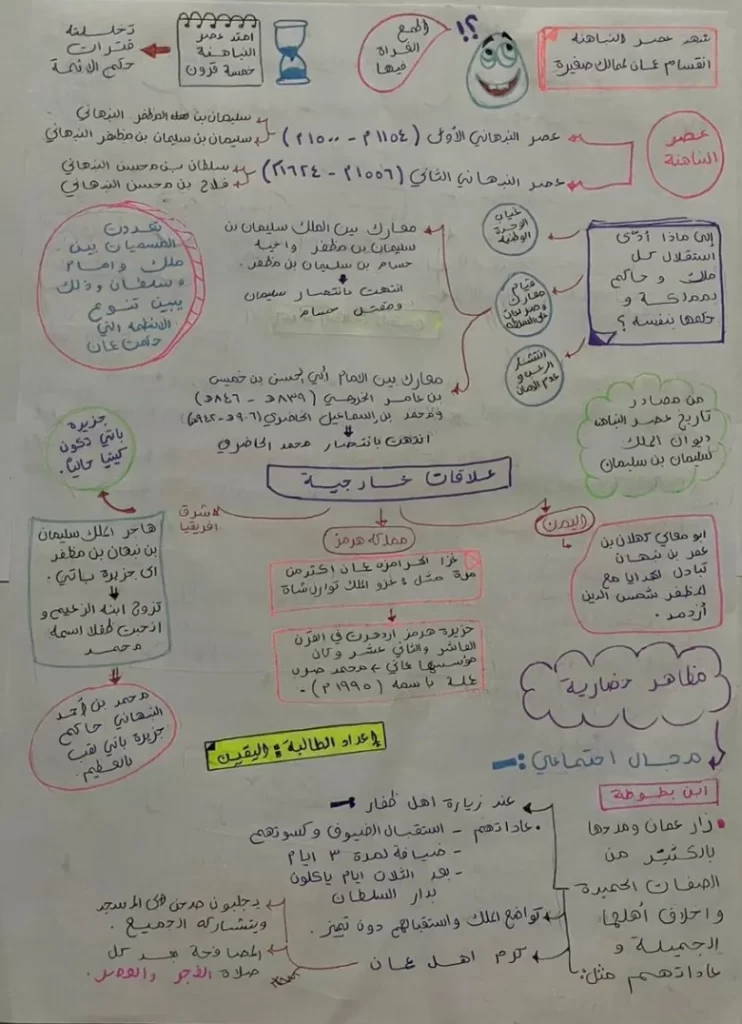 شهد عصر النباهنة
انقسام عمان لممالك صغيرة
؟!
المتع
القراءة
فيها
امتد عصر
النباهنة
خمسة قرون
تخللته
فترات
حكم الأئمة
عصر
النباهنة
عصر النبهاني الأول (١١٥٤م - ١٥٠٠م)
سليمان بن المظفر النبهاني
سليمان بن سليمان بن مظفر النبهاني
عصر النبهاني الثاني (١٥٥٦م - ١٦٢٤م)
سلطان بن محسن النبهاني
فلاح بن محسن النبهاني
إلى ماذا أدى
استقلال كل
ملك و حاكم
بمملكة و
حكمها بنفسه؟
غياب
الوحدة
الوطنية
قيام
معارك
وصراعات
على السلطة
انتشار
الرعب و
عدم الأمان
معارك بين الملك سليمان بن
سليمان بن مظفر وأخيه
حسام بن سليمان بن مظفر.
انتهت بانتصار سليمان
ومقتل حسام
معارك بين الامام أبي الحسن بن خميس
بن عامر (٨٣٩هـ - ٨٤٦هـ)
ومحمد بن إسماعيل الحاضري (٩٠٦هـ-٩٤٢هـ)
انتهت بانتصار محمد الحاضري
تعددت
المسميات بين
ملك وامام
وسلطان وذلك
يبين تنوع
الأنظمة التي
حكمت عمان
من مصادر
تاريخ عصر النباهنة
ديوان الملك
سليمان بن سليمان
علاقات خارجية
اليمن
ابو معالي كهلان بن
عمر بن نبهان
تبادل الهدايا مع
المظفر شمس الدين
أزدمر.
مملكة هرمز
غزا الهرامزة عمان أكثر من
مرة مثل: غزو الملك توران شاة
جزيرة هرمز ازدهرت في القرن
العاشر والثاني عشر وكان
مؤسسها عماني ← محمد ضرب
عملة باسمه (١٩٩٥م).
شرق
افريقيا
هاجر الملك سليمان
بن نبهان بن مظفر
الى جزيرة باتي.
تزوج ابنة الزعيم و
انجبت طفلا اسمه
محمد
جزيرة
باتي تكون
كينيا حالياً.
محمد بن أحمد
النبهاني حاكم
جزيرة باتي لقب
بالعظيم.
مظاهر حضارية
إعداد الطالبة: اليقين
مجال اجتماعي:-
ابن بطوطة
• زار عمان ومدحها
بالكثير من
الصفات الحميدة
واخلاق أهلها
الجميلة و
عاداتهم مثل:
عند زيارة اهل ظفار
•عاداتهم - استقبال الضيوف وكسوتهم
- ضيافة لمدة ٣ ايام
- بعد الثلاث ايام ياكلون
بدار السلطان
تواضع الملك واستقبالهم دون تميز.
كرم اهل عمان
يجلبون صحن في المسجد
ويتشاركه الجميع.
المصافحة بعد كل
صلاة الفجر والعصر.